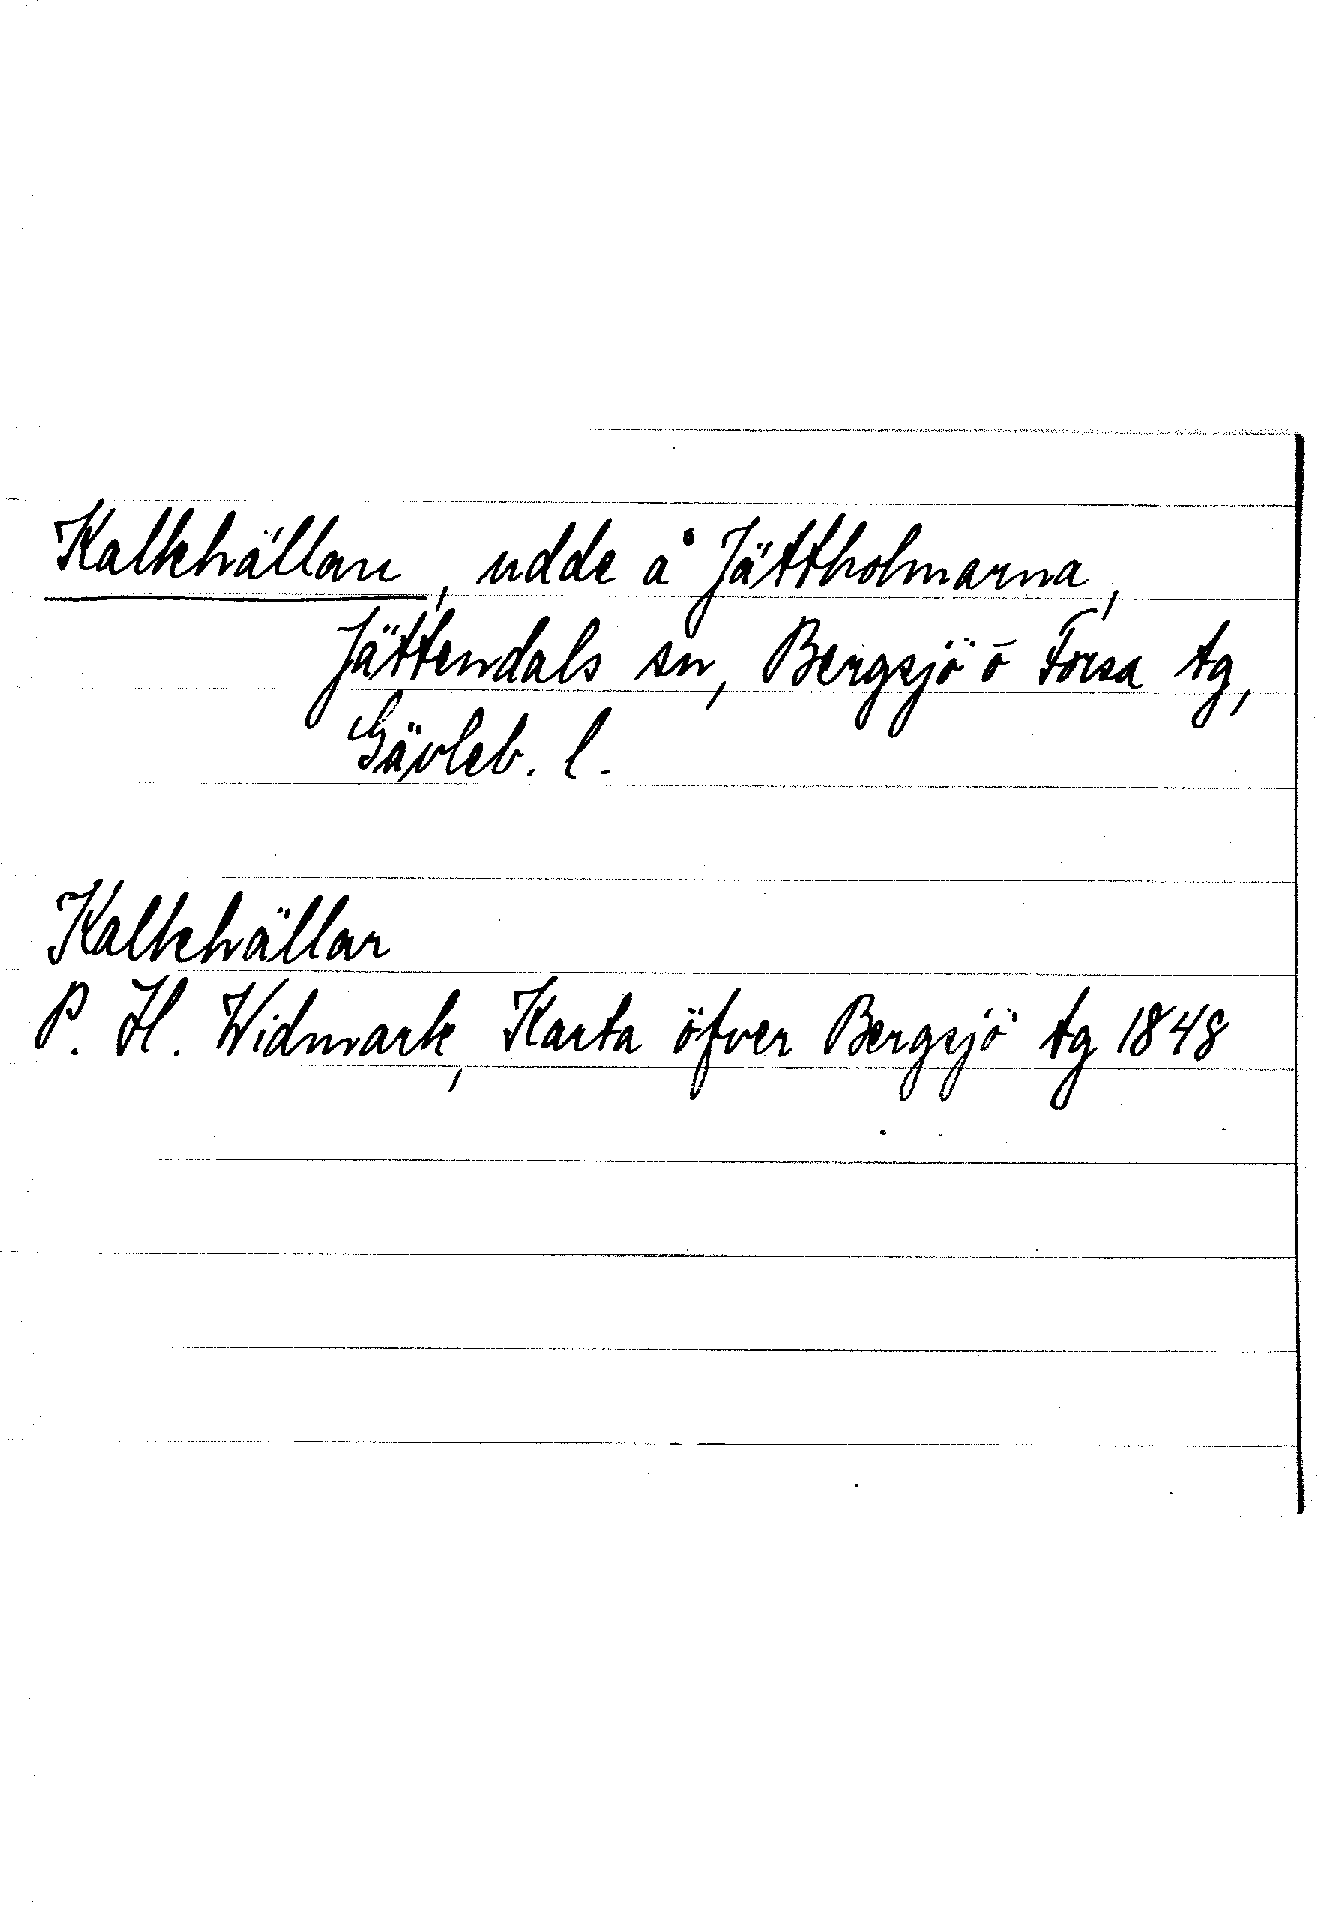 Kalkhällan, udde å Jättholmarna,
Jättendals sn, Bergsjö o Forsa tg,
Gävleb. l.
Kalkhällar
P. H. Widmark, Karta öfver Bergsjö tg 1848